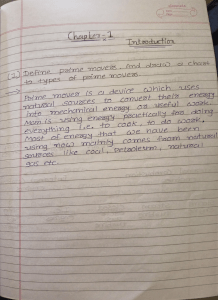 Chapter-1
Introduction
(2) Define prime movers, and draw a chart
to types of prime movers.
→ Prime mover is a device which uses
natural sources to convert their energy
into mechanical energy or useful work.
Man is using energy practically for doing
everything i.e. to cook, to do work,
Most of energy that we have been
using now mainly comes from natural
sources like coal, petroleum, natural
gas etc.